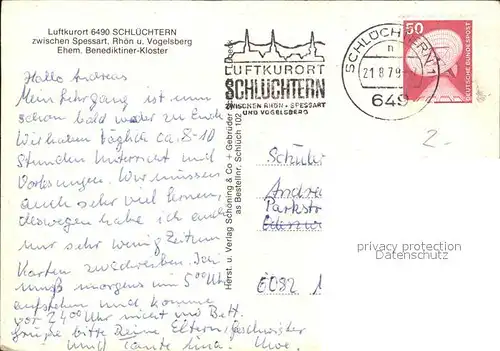 Luftkurort 6490 SCHLÜCHTERN
zwischen Spessart, Rhön u. Vogelsberg
Ehem. Benediktiner-Kloster
Hallo Andreas
Mein Lehrgang ist nun
schon bald wieder zu Ende
Wir haben täglich ca. 8-10
Stunden Unterricht und
Vorlesungen. Wir müssen
auch sehr viel lernen,
deswegen habe ich auch
nur sehr wenig Zeit um
Karten zuschreiben.
muß morgens um 5 00 Uhr
aufstehen und komme
vor 24 00 Uhr nicht ins Bett.
Grüße bitte Deine Eltern, Geschwister
und Tante Lina. Uwe.
Herst. u. Verlag Schöning & Co + Gebrüder
as Bestellnr. Schlüch 102
LUFTKURORT
SCHLÜCHTERN
ZWISCHEN RHÖN • SPESSART
UND VOGELSBERG
SCHLÜCHTERN 1
n
21.8.79
649
50
DEUTSCHE BUNDESPOST
2.-
Andrea
Parkstr
privacy protection
Datenschutz